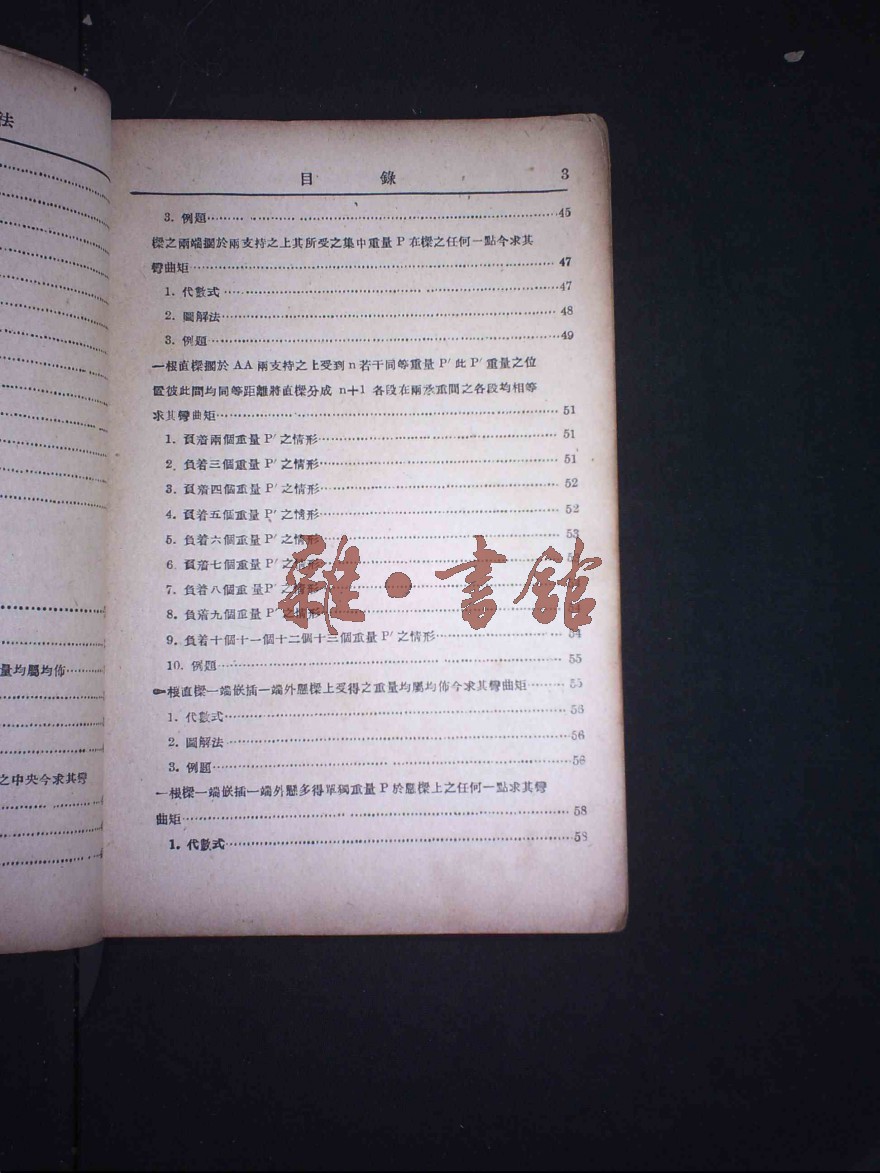 法
量均屬均佈
之中央今求其彎
目 錄 3
3. 例題 45
樑之兩端擱於兩支持之上其所受之集中重量 P 在樑之任何一點今求其
彎曲矩 47
1. 代數式 47
2. 圖解法 48
3. 例題 49
一根直樑擱於 AA 兩支持之上受到 n 若干同等重量 P′ 此 P′ 重量之位
置彼此間均同等距離將直樑分成 n+1 各段在兩承重間之各段均相等
求其彎曲矩 51
1. 負着兩個重量 P′ 之情形 51
2. 負着三個重量 P′ 之情形 51
3. 負着四個重量 P′ 之情形 52
4. 負着五個重量 P′ 之情形 52
5. 負着六個重量 P′ 之情形 53
6. 負着七個重量 P′ 之情形
7. 負着八個重量 P′ 之情形
8. 負着九個重量 P′ 之情形
9. 負着十個十一個十二個十三個重量 P′ 之情形 54
10. 例題 55
一根直樑一端嵌插一端外懸樑上受得之重量均屬均佈今求其彎曲矩 55
1. 代數式 56
2. 圖解法 56
3. 例題 56
一根樑一端嵌插一端外懸多得單獨重量 P 於懸樑上之任何一點求其彎
曲矩 58
1. 代數式 58
雜·書館